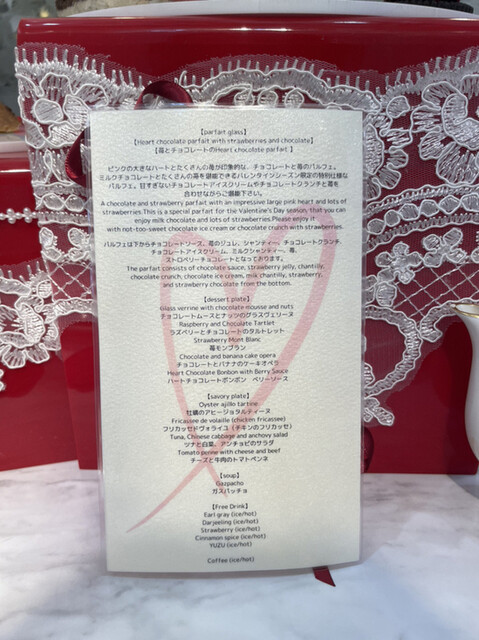 【parfait glass】
【Heart chocolate parfait with strawberries and chocolate】
【苺とチョコレートのHeart chocolate parfait 】
ピンクの大きなハートとたくさんの苺が印象的な、チョコレートと苺のパルフェ。
ミルクチョコレートとたくさんの苺を堪能できるバレンタインシーズン限定の特別仕様な
パルフェ。甘すぎないチョコレートアイスクリームやチョコレートクランチと苺を
合わせながらご堪能下さい。
A chocolate and strawberry parfait with an impressive large pink heart and lots of
strawberries.This is a special parfait for the Valentine's Day season, that you can
enjoy milk chocolate and lots of strawberries.Please enjoy it
with not-too-sweet chocolate ice cream or chocolate crunch with strawberries.
パルフェは下からチョコレートソース、苺のジュレ、シャンティー、チョコレートクランチ、
チョコレートアイスクリーム、ミルクシャンティー、苺、
ストロベリーチョコレートとなっております。
The parfait consists of chocolate sauce, strawberry jelly, chantilly,
chocolate crunch, chocolate ice cream, milk chantilly, strawberry,
and strawberry chocolate from the bottom.
【dessert plate】
Glass verrine with chocolate mousse and nuts
チョコレートムースとナッツのグラスヴェリーヌ
Raspberry and Chocolate Tartlet
ラズベリーとチョコレートのタルトレット
Strawberry Mont Blanc
苺モンブラン
Chocolate and banana cake opera
チョコレートとバナナのケーキオペラ
Heart Chocolate Bonbon with Berry Sauce
ハートチョコレートボンボン　ベリーソース
【savory plate】
Oyster ajillo tartine
牡蠣のアヒージョタルティーヌ
Fricassee de volaille (chicken fricassee)
フリカッセドヴォライユ（チキンのフリカッセ）
Tuna, Chinese cabbage and anchovy salad
ツナと白菜、アンチョビのサラダ
Tomato penne with cheese and beef
チーズと牛肉のトマトペンネ
【soup】
Gazpacho
ガスパッチョ
【Free Drink】
Earl gray (ice/hot)
Darjeeling (ice/hot)
Strawberry (ice/hot)
Cinnamon spice (ice/hot)
YUZU (ice/hot)
Coffee (ice/hot)